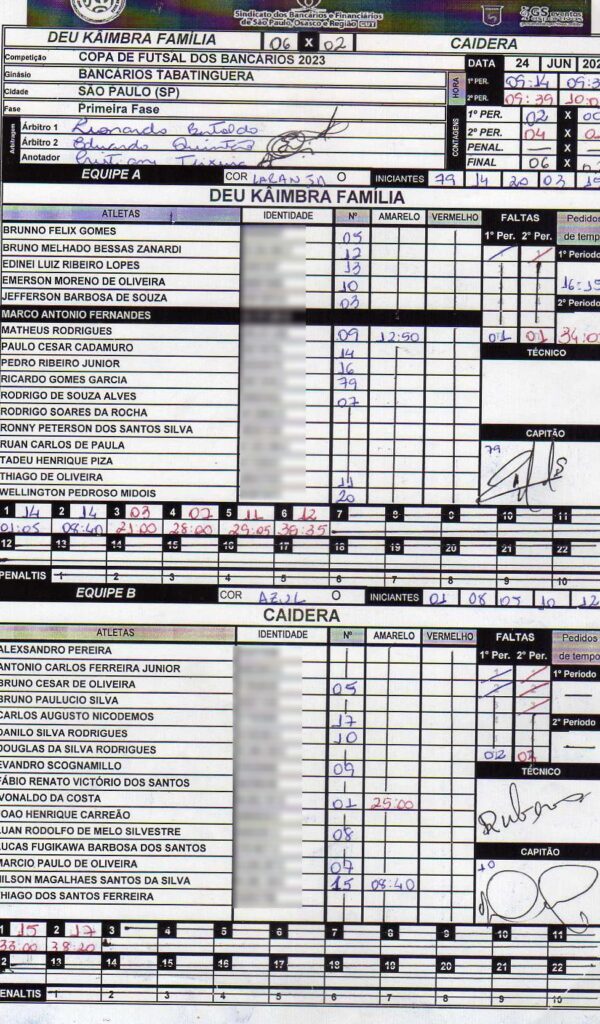 Sindicato dos Bancários e Financiários
de São Paulo, Osasco e Região CUT
GS eventos
DEU KÂIMBRA FAMÍLIA 06 X 02 CAIDERA
Competição COPA DE FUTSAL DOS BANCARIOS 2023
DATA 24 JUN 202
Ginásio BANCÁRIOS TABATINGUERA
HORA 1º PER. 09:14 09:3
Cidade SÃO PAULO (SP)
2º PER. 09:39 10:0
Fase Primeira Fase
CONTAGENS 1º PER. 02 X 00
Arbitragem Árbitro 1 Leonardo Bertoldo
2º PER. 04 X 0
Árbitro 2 Eduardo Quintão
PENAL. — X —
Anotador Cristian Teixeira
FINAL 06 X 0
EQUIPE A COR LARANJA O INICIANTES 79 14 20 03 1
DEU KÂIMBRA FAMÍLIA
ATLETAS IDENTIDADE Nº AMARELO VERMELHO FALTAS Pedidos
1º Per. 2º Per. de tempo
BRUNNO FELIX GOMES 05
BRUNO MELHADO BESSAS ZANARDI 12 1º Periodo
EDINEI LUIZ RIBEIRO LOPES 13
EMERSON MORENO DE OLIVEIRA 10 16:15
JEFFERSON BARBOSA DE SOUZA 03 2º Periodo
MARCO ANTONIO FERNANDES
MATHEUS RODRIGUES 09 12:50 01 01 34:0
PAULO CESAR CADAMURO 14 TÉCNICO
PEDRO RIBEIRO JUNIOR 16
RICARDO GOMES GARCIA 79
RODRIGO DE SOUZA ALVES 07
RODRIGO SOARES DA ROCHA
RONNY PETERSON DOS SANTOS SILVA CAPITÃO
RUAN CARLOS DE PAULA 79
TADEU HENRIQUE PIZA
THIAGO DE OLIVEIRA 11
WELLINGTON PEDROSO MIDOIS 20
1 14 2 14 3 03 4 07 5 11 6 12 7 8 9 10 11
01:05 08:40 21:00 28:00 29:05 36:35
12 13 14 15 16 17 18 19 20 21 22
PENALTIS 1 2 3 4 5 6 7 8 9 10
EQUIPE B COR AZUL O INICIANTES 01 08 07 10 12
CAIDERA
ATLETAS IDENTIDADE Nº AMARELO VERMELHO FALTAS Pedidos
1º Per. 2º Per. de tempo
ALEXSANDRO PEREIRA
ANTONIO CARLOS FERREIRA JUNIOR 1º Periodo
BRUNO CESAR DE OLIVEIRA 05
BRUNO PAULUCIO SILVA —
CARLOS AUGUSTO NICODEMOS 17
DANILO SILVA RODRIGUES 10 2º Periodo
DOUGLAS DA SILVA RODRIGUES —
EVANDRO SCOGNAMILLO 09 02 03
FÁBIO RENATO VICTÓRIO DOS SANTOS TÉCNICO
IVONALDO DA COSTA 01 25:00
JOAO HENRIQUE CARREÃO Rubens
LUAN RODOLFO DE MELO SILVESTRE 08
LUCAS FUGIKAWA BARBOSA DOS SANTOS CAPITÃO
MARCIO PAULO DE OLIVEIRA 07 10
NILSON MAGALHAES SANTOS DA SILVA 15 08:40
THIAGO DOS SANTOS FERREIRA
1 15 2 17 3 4 5 6 7 8 9 10 11
33:00 38:20
2 13 14 15 16 17 18 19 20 21 22
ENALTIS 1 2 3 4 5 6 7 8 9 10